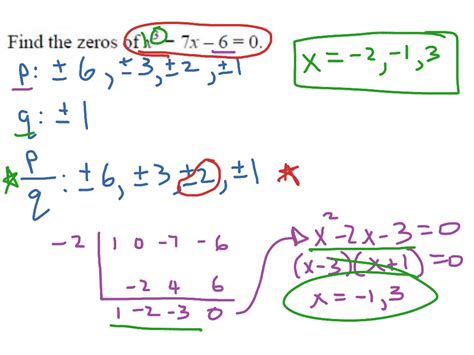 Find the zeros of h³ - 7x - 6 = 0.
x = -2, -1, 3
p: ± 6, ±3, ±2, ±1
q: ± 1
p/q: ±6, ±3, ±2, ±1
-2 | 1 0 -7 -6
-2 4 6
1 -2 -3 0
x² - 2x - 3 = 0
(x-3)(x+1) = 0
x = -1, 3